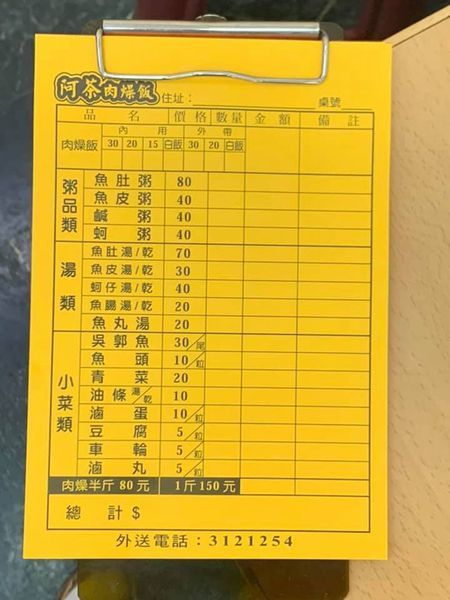 阿茶肉燥飯 住址： 桌號
品名 價格 數量 金額 備註
肉燥飯 內用 外帶
30 20 15 白飯 30 20 白飯
粥品類
魚肚粥 80
魚皮粥 40
鹹粥 40
蚵粥 40
湯類
魚肚湯/乾 70
魚皮湯/乾 30
蚵仔湯/乾 40
魚腸湯/乾 20
魚丸湯 20
小菜類
吳郭魚 30/尾
魚頭 10/粒
青菜 20
油條湯/乾 10
滷蛋 10/粒
豆腐 5/粒
車輪 5/粒
滷丸 5/粒
肉燥半斤80元 1斤150元
總計$
外送電話：3121254